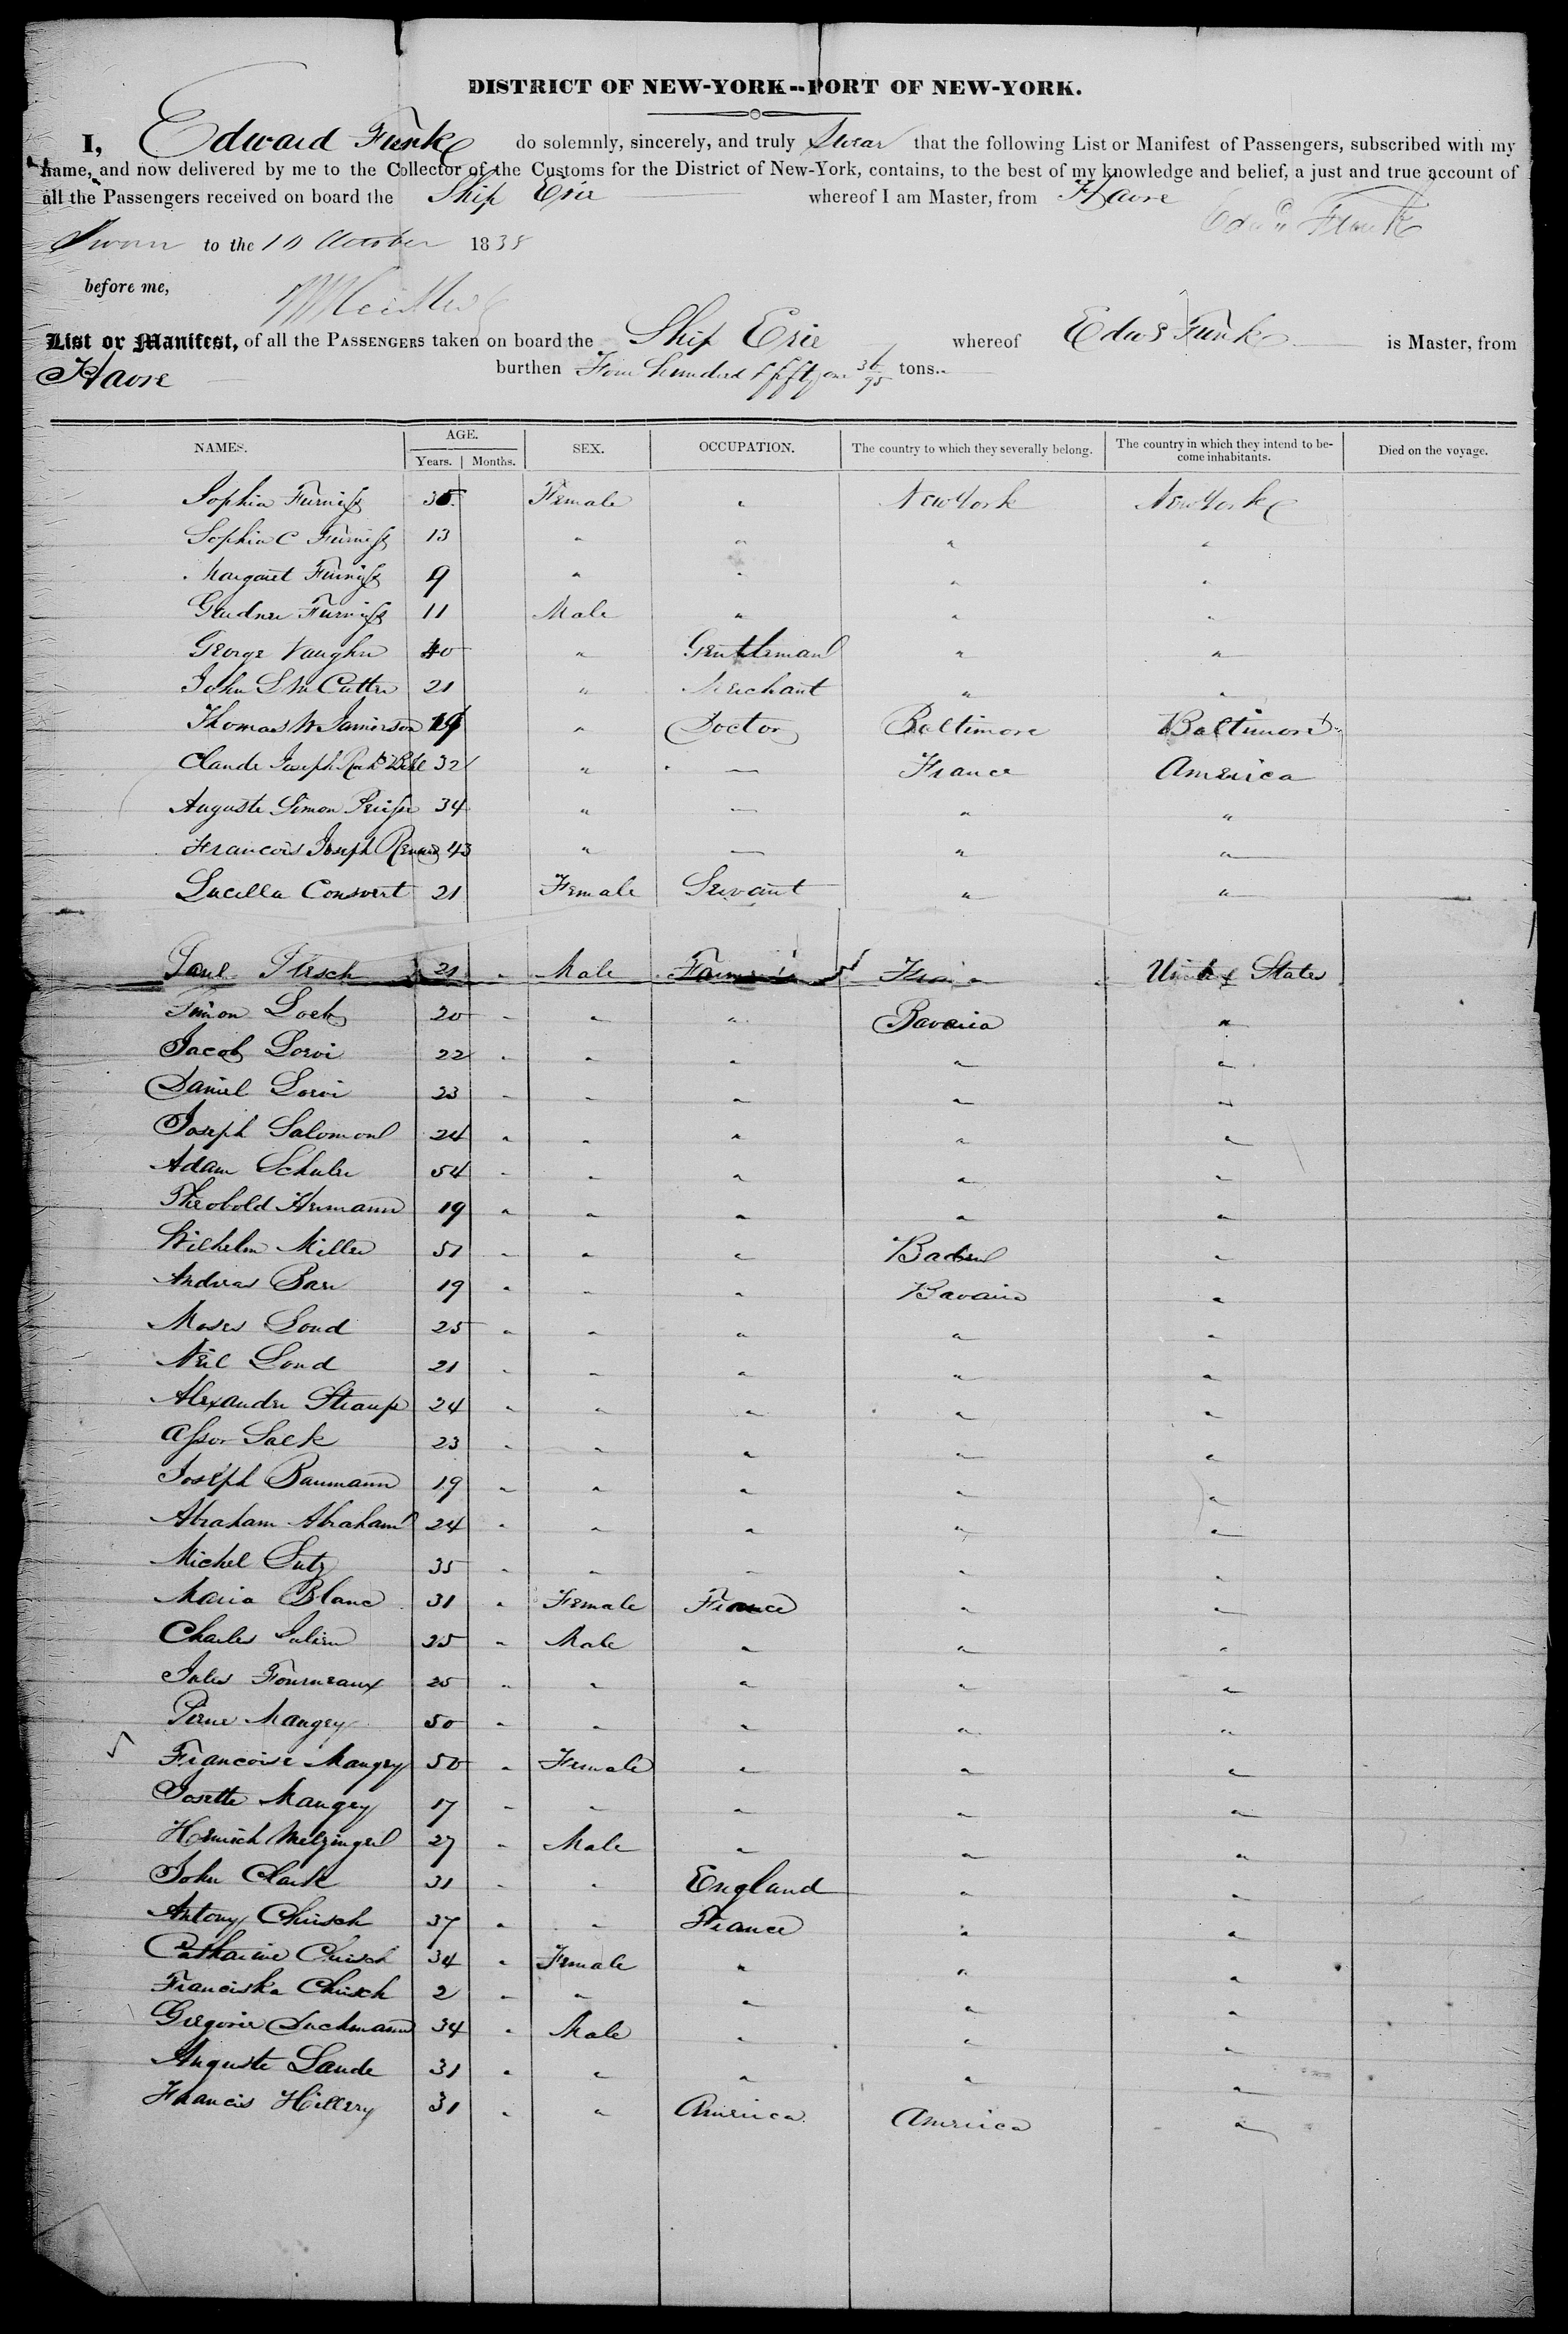 DISTRICT OF NEW-YORK--PORT OF NEW-YORK.
I, Edward Funk do solemnly, sincerely, and truly Swear that the following List or Manifest of Passengers, subscribed with my
name, and now delivered by me to the Collector of the Customs for the District of New-York, contains, to the best of my knowledge and belief, a just and true account of
all the Passengers received on board the Ship Erie whereof I am Master, from Havre
Edwd Funk
Sworn to the 10 October 1838
before me,
List or Manifest, of all the PASSENGERS taken on board the Ship Erie whereof Edwd Funk is Master, from
Havre burthen Four hundred & fifty one 36/95 tons..
NAMES. AGE. SEX. OCCUPATION. The country to which they severally belong. The country in which they intend to be- Died on the voyage.
Years. Months. come inhabitants.
Sophia Furniss 35 Female " New York New York
Sophia C Furniss 13 " " " "
Margaret Furniss 9 " " " "
Furniss 11 Male " " "
George Vaughn 40 " Gentleman " "
John S McCutter 21 " Merchant " "
Thomas W Jamerson 19 " Doctor Baltimore Baltimore
Claude Joseph 32 " — France America
Auguste Simon 34 " — " "
Francois Joseph 43 " — " "
Lucilla Convert 21 Female Servant " "
21 " Male Farmer United States
Simon Loeb 20 " " " Bavaria "
Jacob Lorvi 22 " " " " "
Daniel Lorvi 23 " " " " "
Joseph Salomon 24 " " " " "
Adam Schuler 54 " " " " "
Theobold Hermann 19 " " " " "
Wilhelm Miller 51 " " " Baden "
Andreas 19 " " " Bavaria "
Moses Lond 25 " " " " "
Lond 21 " " " " "
Alexander Straup 24 " " " " "
Assor Sack 23 " " " " "
Joseph Baumann 19 " " " " "
Abraham Abraham 24 " " " " "
Michel Lutz 35 " " " " "
Maria Blanc 31 " Female France " "
Charles Julien 25 " Male " " "
Jules Fourneaux 25 " " " " "
Pierre Mangey 50 " " " " "
Francoise Mangey 50 " Female " " "
Josette Mangey 17 " " " " "
Heinrich 27 " Male " " "
John Clark 31 " " England " "
Antony Chirsch 37 " " France " "
Catharine Chirsch 34 " Female " " "
Franciska Chirsch 2 " " " " "
Gregorie 34 " Male " " "
Auguste Lande 31 " " " " "
Francis Hillery 31 " " America America "